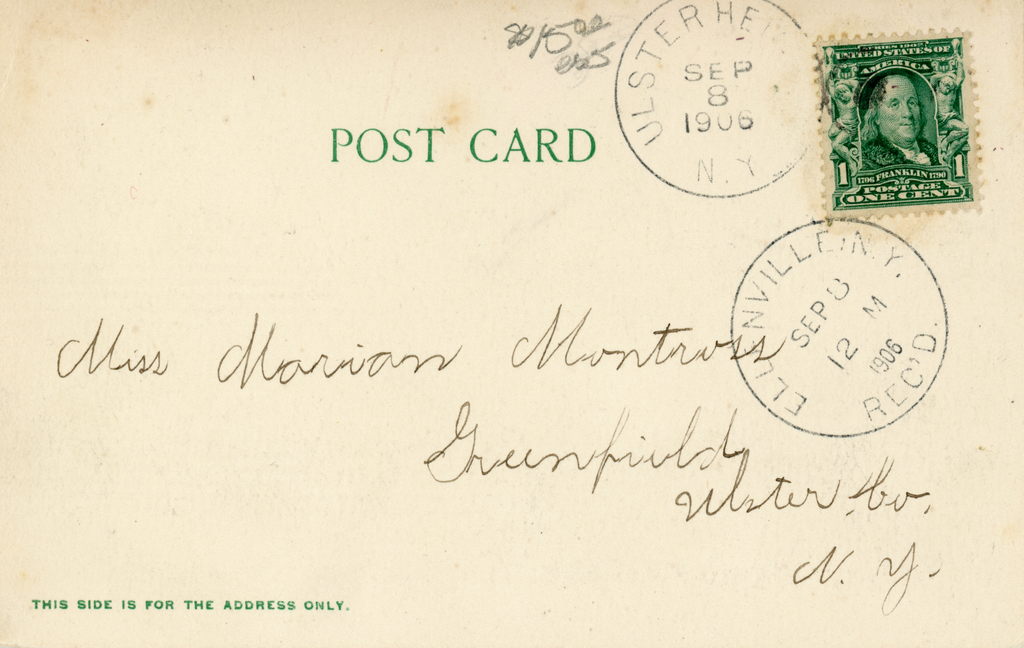 $15.00
POST CARD
ULSTER HEI
SEP
8
1906
N.Y.
SERIES 1902
UNITED STATES OF
AMERICA
1 1
1706 FRANKLIN 1790
POSTAGE
ONE CENT
ELLENVILLE, N.Y.
SEP 8
12 M
1906
REC'D.
Miss Marian Montross
Greenfield
Ulster Co.
N. Y.
THIS SIDE IS FOR THE ADDRESS ONLY.